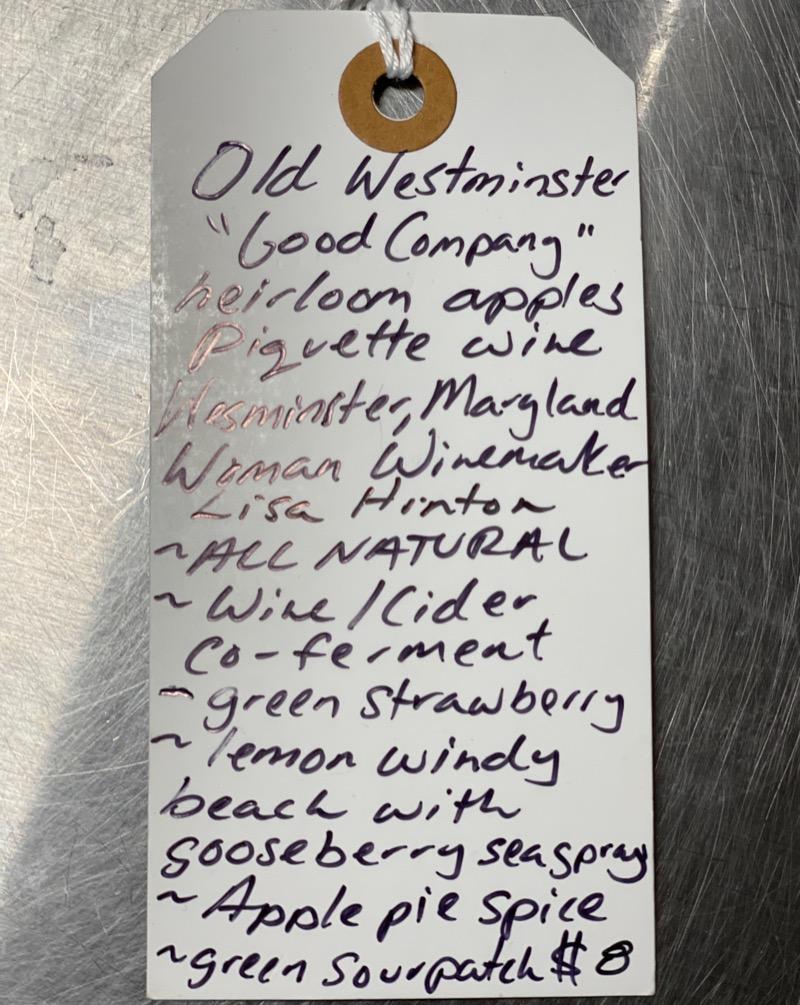 Old Westminster
"Good Company"
heirloom apples
Piquette wine
Wesminster, Maryland
Woman Winemaker
Lisa Hinton
~ALL NATURAL
~Wine/Cider
co-ferment
~green strawberry
~lemon windy
beach with
gooseberry seaspray
~Apple pie spice
~green sourpatch $8